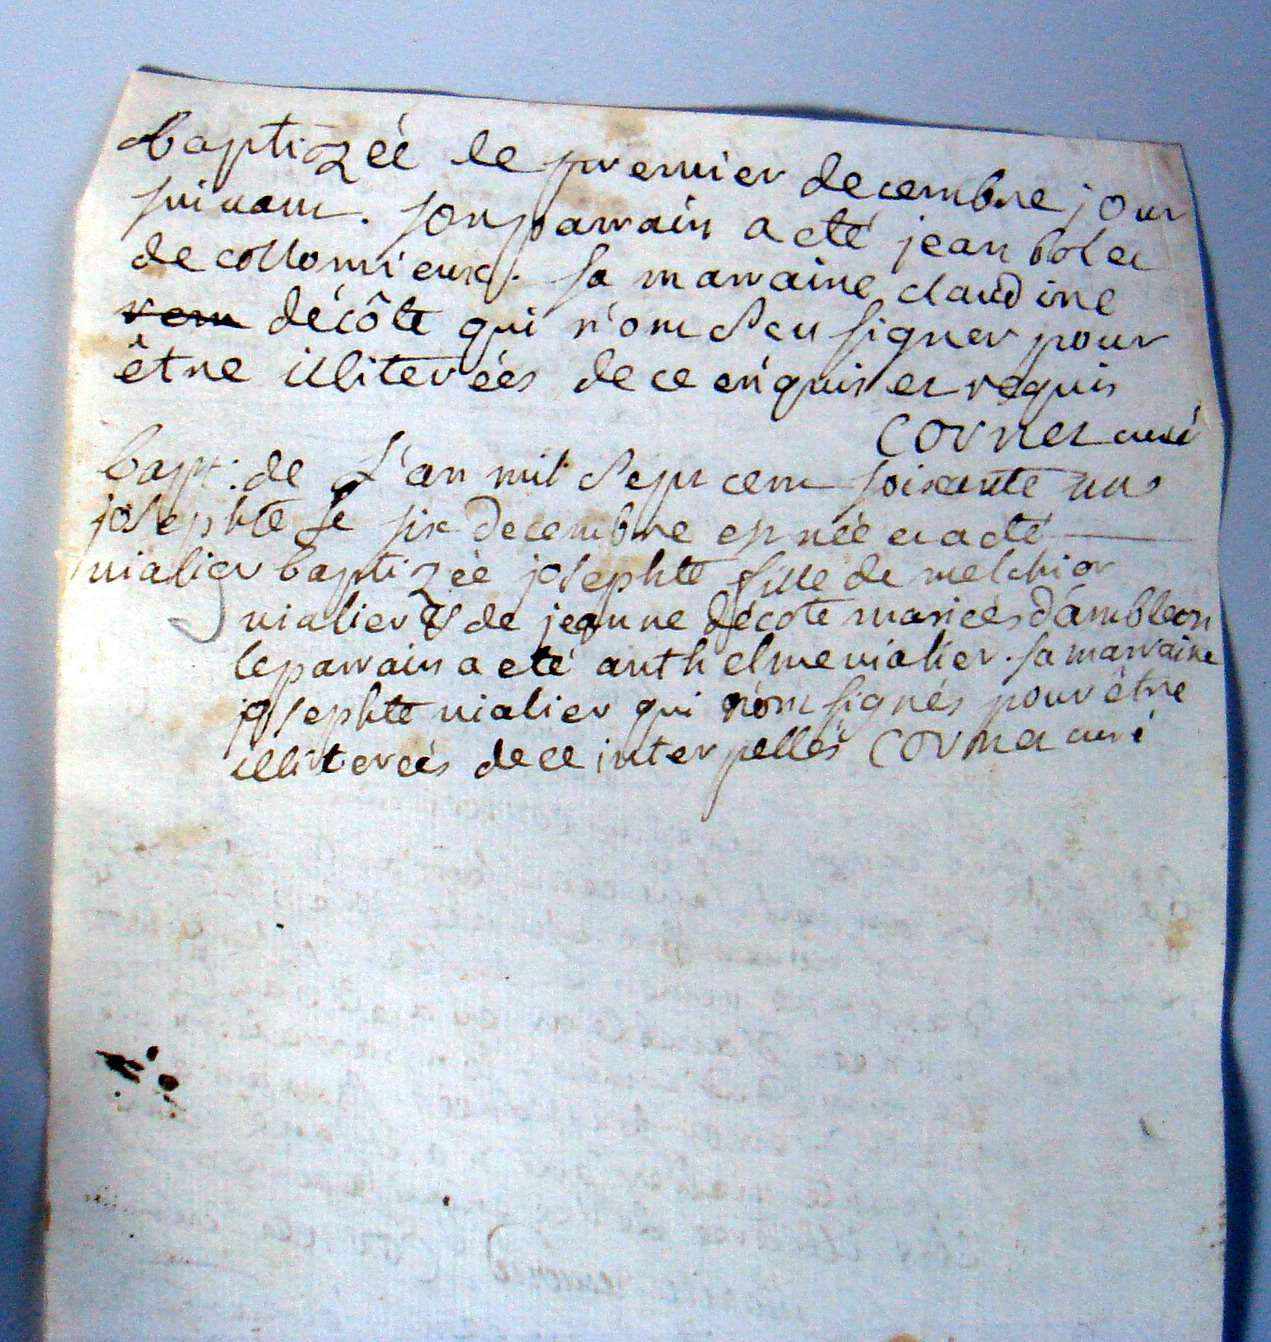 baptizéé le premier decembre jour
suivant. son parrain a eté jean bolet
de collomieux. sa marraine claudine
décôte qui n'ont seu signer pour
être illiterées de ce enquis et requis
cornet curé
bapt. de L'an mil sept cent soixante un
josephte Le six decembre est néé et a eté
vialier baptizéé josephte fille de melchior
vialier & de jeanne décote mariées d'ambleon
le parrain a eté anthelme vialier. sa marraine
josephte vialier qui n'ont signés pour être
illiterées de ce interpellés cornet curé